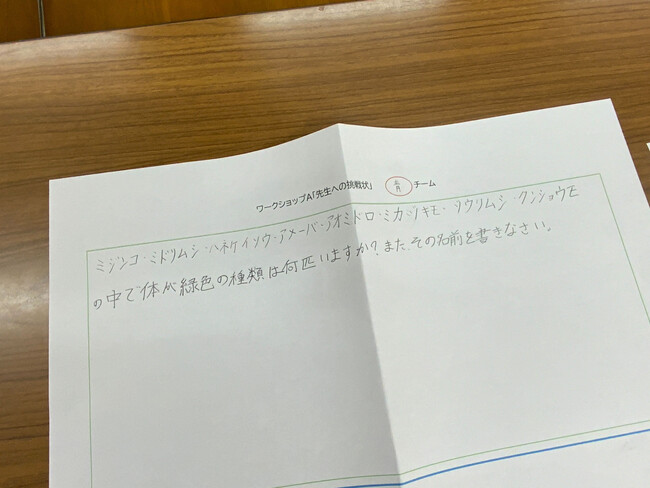 ワークショップA「先生への挑戦状」 青 チーム
ミジンコ・ミドリムシ・ハネケイソウ・アメーバ・アオミドロ・ミカヅキモ・ゾウリムシ・クンショウモ
の中で体が緑色の種類は何匹いますか?また、その名前を書きなさい。